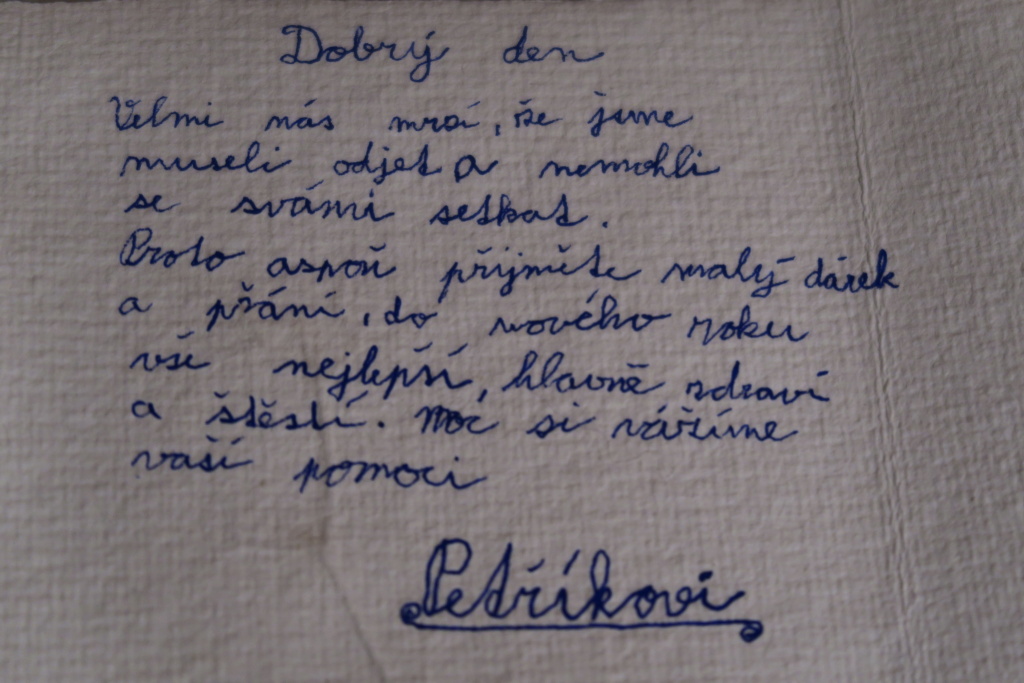 Dobrý den
Velmi nás mrzí, že jsme
museli odjet a nemohli
se svámi setkat.
Proto aspoň přijměte malý dárek
a přání, do nového roku
vše nejlepší, hlavně zdraví
a štěstí. Moc si vážíme
vaší pomoci
Petříkovi